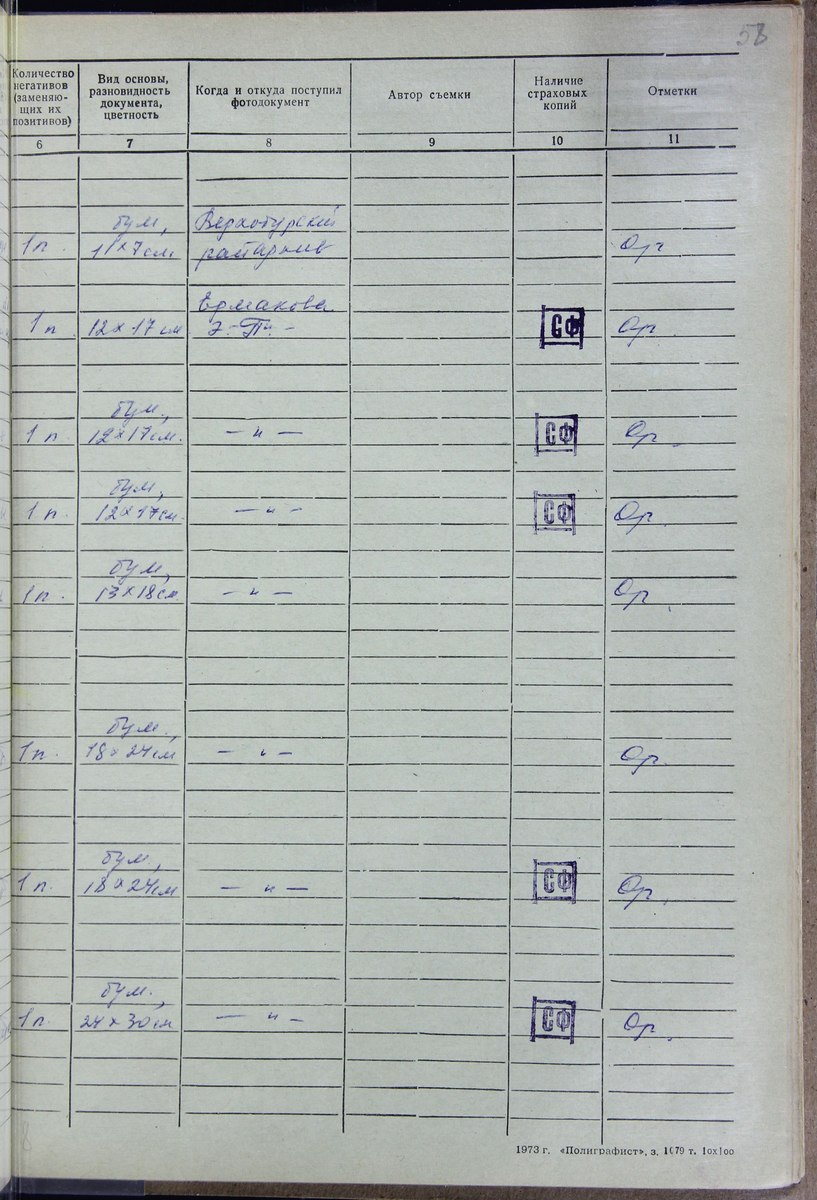 Количество негативов (заменяю- щих их позитивов)
Вид основы, разновидность документа, цветность
Когда и откуда поступил фотодокумент
Автор съемки
Наличие страховых копий
Отметки
6 7 8 9 10 11
бум, Верхотурский
1 п. 11×7 см. райархив Ор.
Ермакова
1 п. 12×17 см СФ Ор.
бум.,
1 п. 12×17 см. — и — СФ Ор.
бум,
1 п. 12×17 см. — и — СФ Ор.
бум,
1 п. 13×18 см. — и — Ор.
бум.,
1 п. 18×24 см — и — Ор.
бум.,
1 п. 18×24 см — и — СФ Ор.
бум.,
1 п. 24×30 см — и — СФ Ор.
1973 г. «Полиграфист», з. 1679 т. 10х100